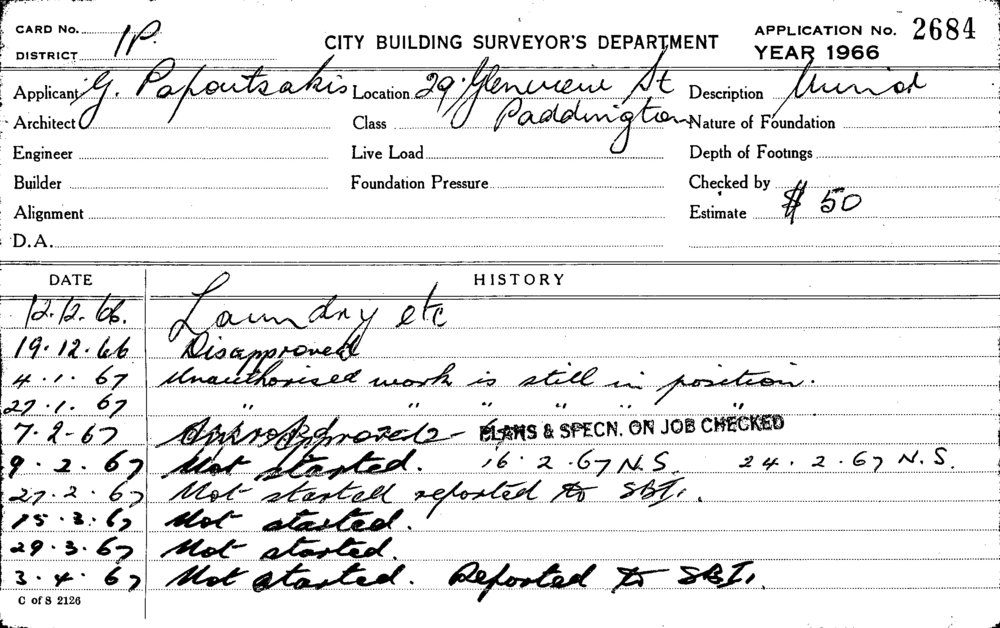 CARD No. 1P. CITY BUILDING SURVEYOR'S DEPARTMENT APPLICATION No. 2684
DISTRICT YEAR 1966
Applicant G. Papoutsakis Location 29 Glenview St Description Minor
Architect Class Paddington Nature of Foundation
Engineer Live Load Depth of Footings
Builder Foundation Pressure Checked by
Alignment Estimate $ 50
D.A.
DATE HISTORY
12.12.66. Laundry etc
19.12.66 Disapproved
4.1.67 Unauthorised work is still in position.
27.1.67 " " " " " "
7.2.67 Approved - PLANS & SPECN. ON JOB CHECKED
9.2.67 Not started. 16.2.67 N.S. 24.2.67 N.S.
27.2.67 Not started reported to SBI.
15.3.67 Not started.
29.3.67 Not started.
3.4.67 Not started. Reported to SBI.
C of S 2126